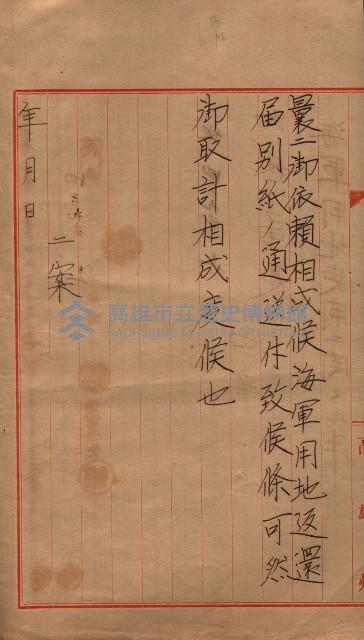 曩ニ御依賴相成候海軍用地返還
届別紙ノ通送付致候條可然
御取計相成度候也
二案
年月日
高雄州
高雄市立歷史博物館
KAOHSIUNG MUSEUM OF HISTORY